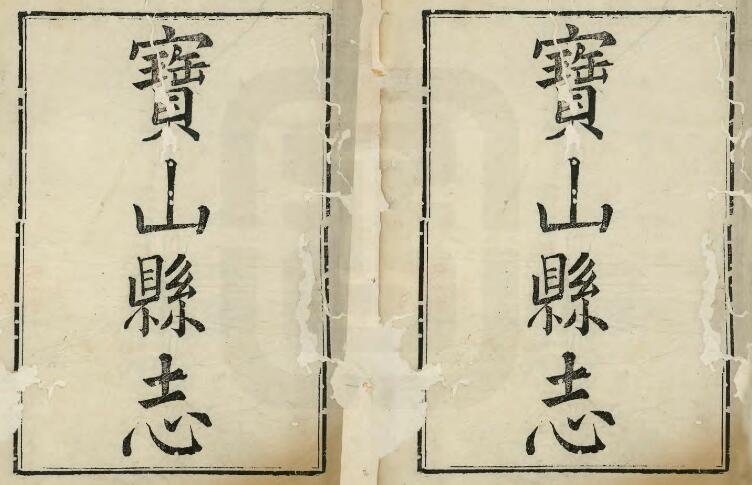 寶山縣志
寶山縣志